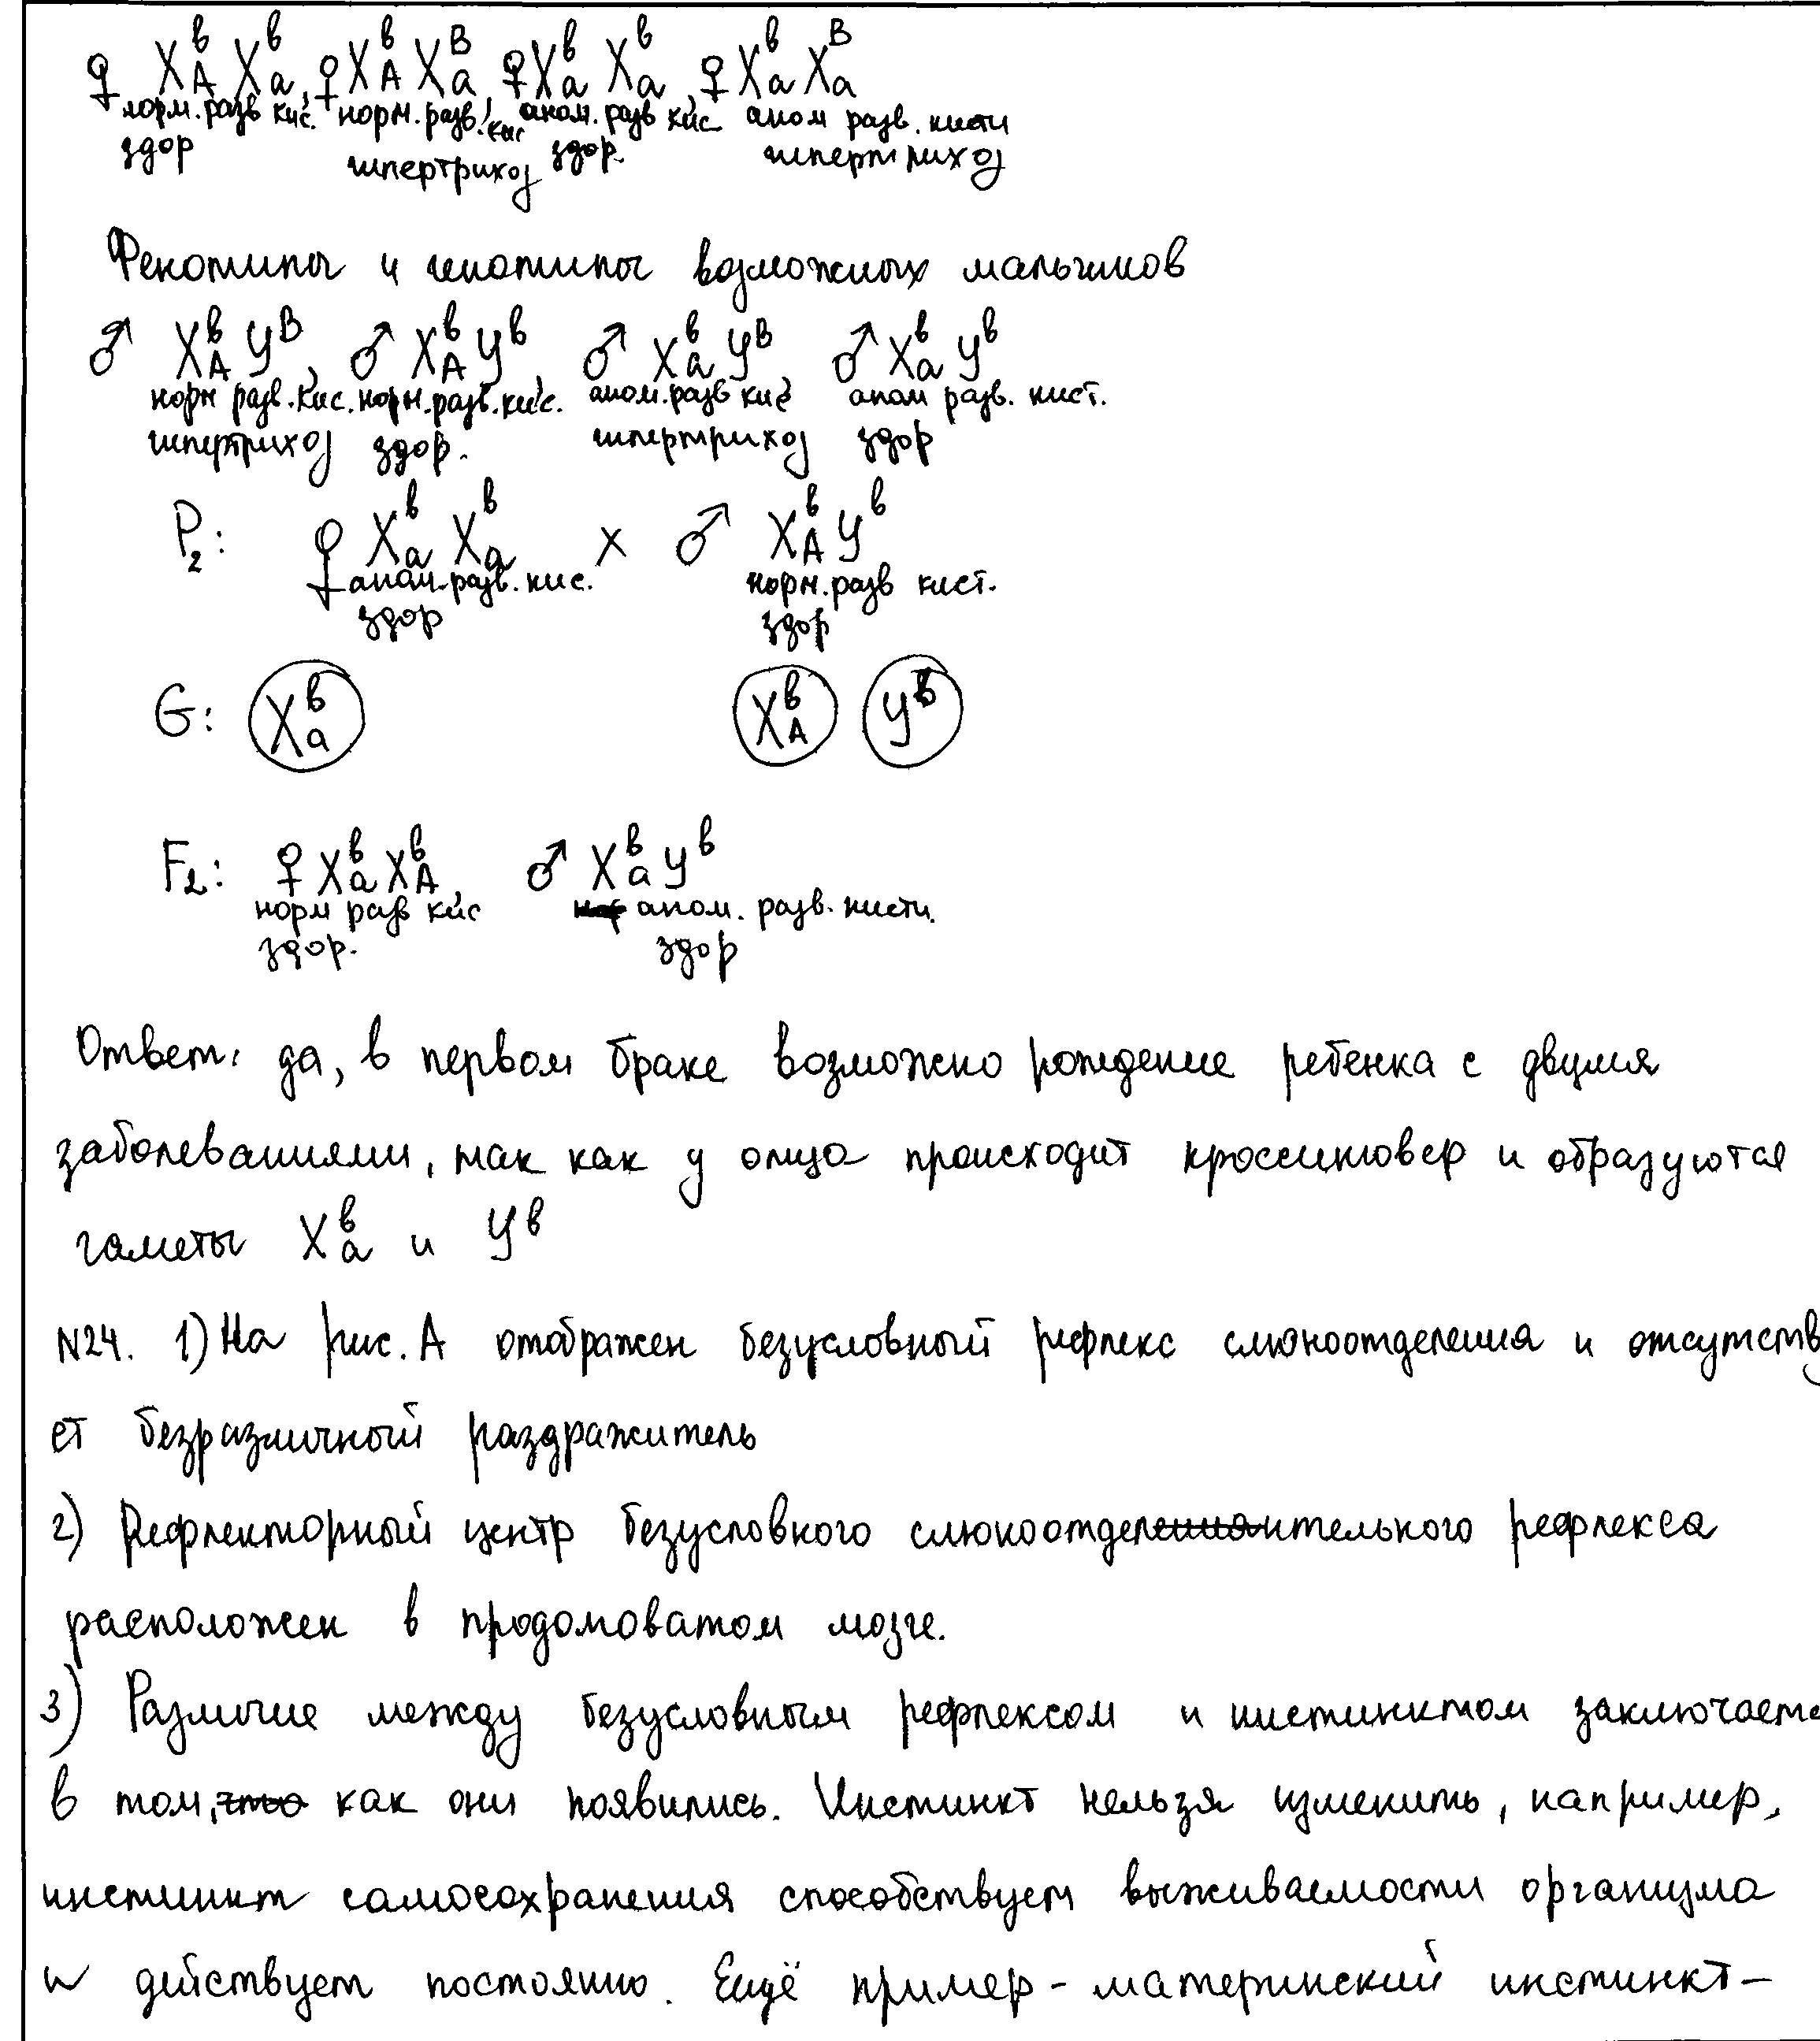 ♀ X^в_A X^в_a, ♀ X^в_A X^В_a, ♀ X^в_a X^в_a, ♀ X^в_a X^В_a
норм. разв кис. норм. разв. кис аном. разв кис аном разв. кисти
здор гипертрихоз здор. гипертрихоз
Фенотипы и генотипы возможных мальчиков
♂ X^в_A У^В, ♂ X^в_A У^в, ♂ X^в_a У^В ♂ X^в_a У^в
норм разв. кис. норм. разв. кис. аном. разв кис аном разв. кист.
гипертрихоз здор. гипертрихоз здор
P₂: ♀ X^в_a X^в_a × ♂ X^в_A У^в
аном. разв. кис. норм. разв кист.
здор здор
G: X^в_a X^в_A У^в
F₂: ♀ X^в_a X^в_A, ♂ X^в_a У^в
норм разв кис аном. разв. кисти.
здор. здор
Ответ: да, в первом браке возможно рождение ребенка с двумя
заболеваниями, так как у отца происходит кроссинговер и образуются
гаметы X^в_a и У^в
N24. 1) На рис. А отображен безусловный рефлекс слюноотделения и отсутств
ет безразличный раздражитель
2) Рефлекторный центр безусловного слюноотделительного рефлекса
расположен в продолговатом мозге.
3) Различие между безусловным рефлексом и инстинктом заключается
в том, что как они появились. Инстинкт нельзя изменить, например,
инстинкт самосохранения способствует выживаемости организма
и действует постоянно. Ещё пример - материнский инстинкт -